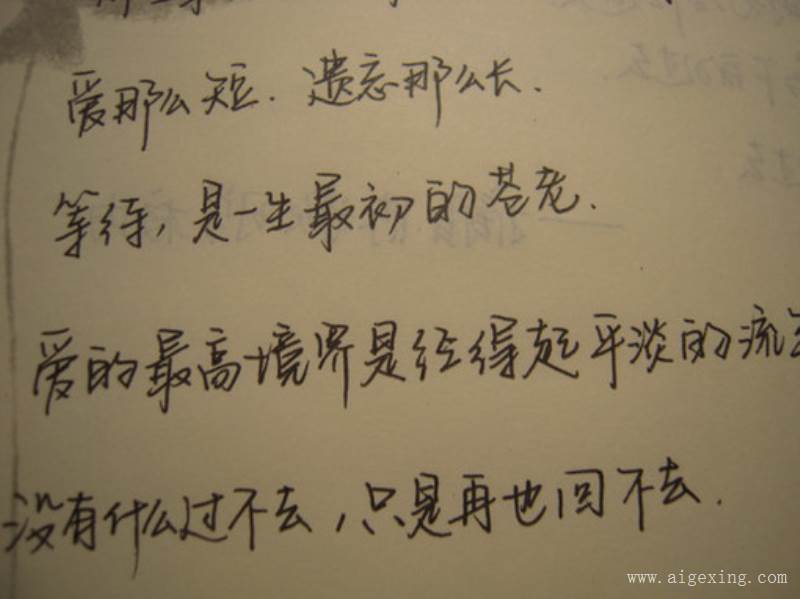 爱那么短.遗忘那么长.
等待,是一生最初的苍老.
爱的最高境界是经得起平淡的流
没有什么过不去,只是再也回不去.
www.aigexing.com